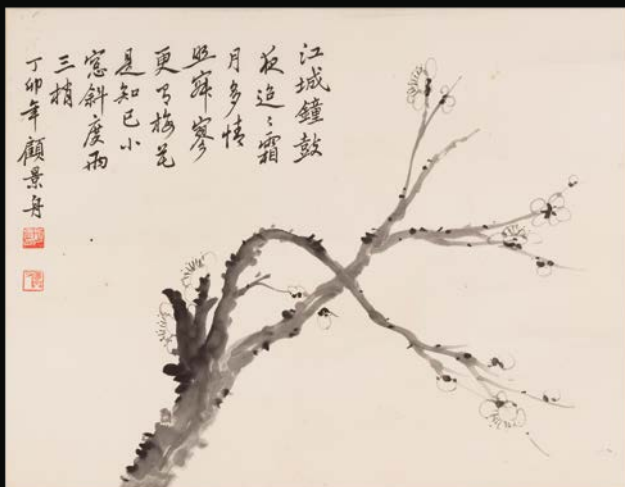 江城鐘鼓
夜迢〻霜
月多情
照寂寥
更有梅花
是知已小
窓斜度兩
三梢
丁卯年 顧景舟